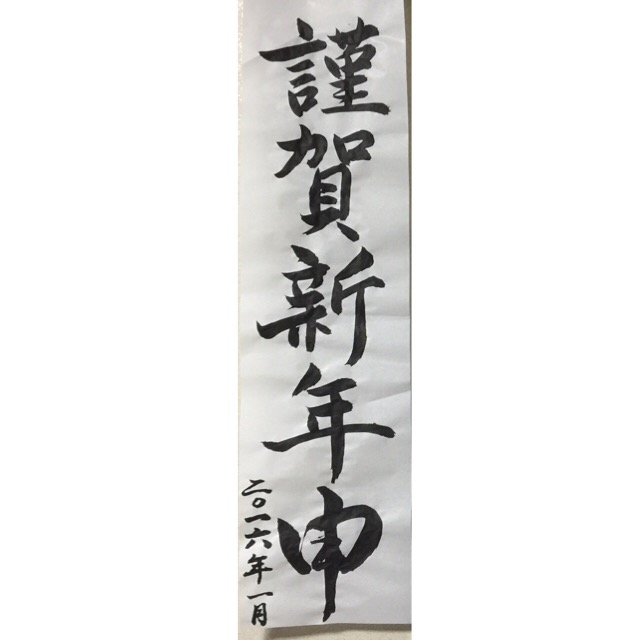 謹賀新年申
二〇一六年一月